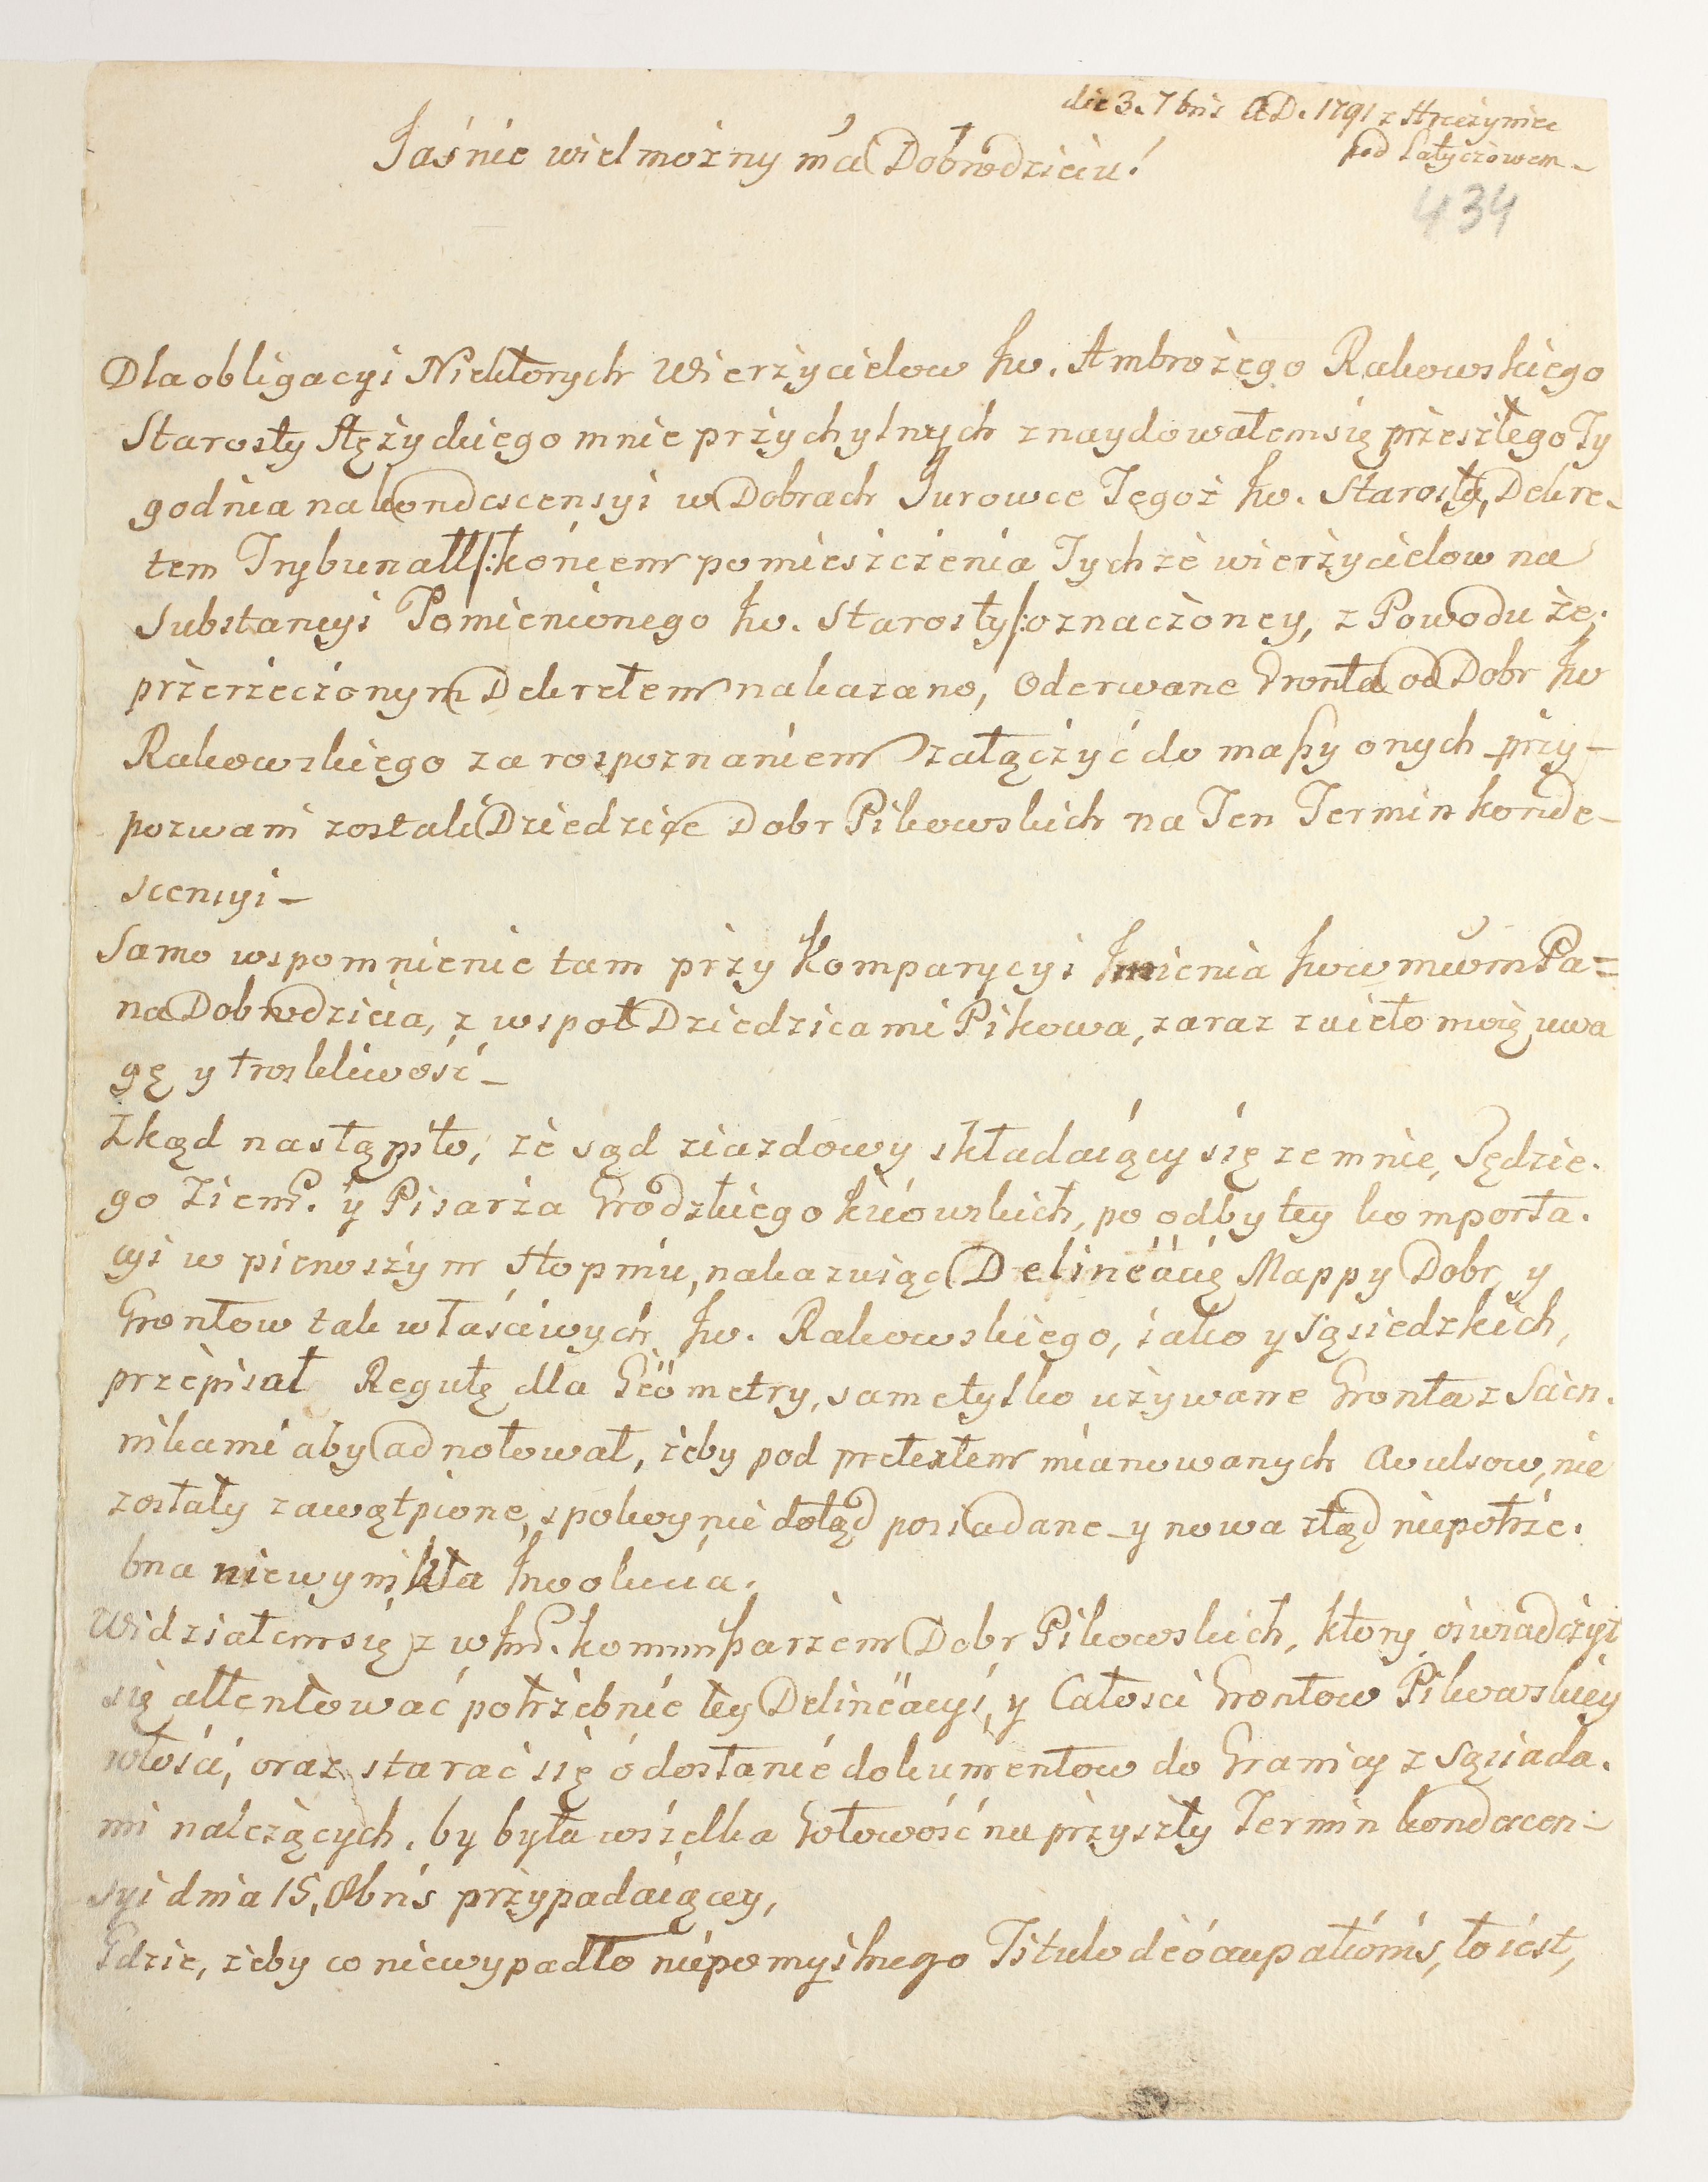 die 3. 7bris AD. 1791 z Hreczyniec
pod Latyczowem –
Jaśnie wielmożny mci Dobrodzieiu!
434
Dla obligacyi Niektorych Wierzycielow Jw. Ambrożego Rakowskiego
Starosty Stężyckiego mnie przychylnych znaydowałem się przeszłego Ty
godnia na kondescensyi w Dobrach Jurowce Tegoż Jw. Starosty, Dekre-
tem Trybunall /: końcem pomieszczenia Tychże wierzycielow na
Substancyi Pomienionego Jw. Starosty /: oznaczoney, z Powodu że
przerzeczonym Dekretem nakazano, Oderwane Gronta od Dobr Jw
Rakowskiego za rozpoznaniem załączyć do massy onych przy-
pozwani zostali Dziedzice Dobr Pikowskich na Ten Termin konde-
scensyi –
Samo wspomnienie tam przy Komparycyi Jmienia Jww mwm Pa=
na Dobrodzieia, z wspoł Dziedzicami Pikowa, zaraz zaieło moię uwa
gę y troskliwość –
Zkąd nastąpiło, że sąd ziazdowy składaiący się ze mnie, Sędzie.
go Ziem. y Pisarza Grodzkiego kiiowskich, po odbytey komporta.
cyi w pierwszym stopniu, nakazuiąc Delineacię Mappy Dobr y
Grontow tak właściwych Jw. Rakowskiego, iako y Sąsiedzkich,
przepisał Regułę dla Geometry, same tylko używane Gronta z Scien.
nikami aby adnotował, żeby pod pretextem mianowanych Avulsow, nie
zostały zawątpione, spokoynie dotąd posiadane y nowa ztąd niepotrze.
bna niewynikła Jnwolucia.
Widziałem się z wJm. kommissarzem Dobr Pikowskich, ktory oświadczył
się attentować potrzebnie tey Delineacyi, y Całosci Grontow Pikowskiey
włości, oraz starać się o dostanie dokumentow do Granicy z Sąsiada.
mi należących, by była wszelka Gotowość na przyszły Termin kondescen-
syi dnia 15. 8bris przypadaiącey,
Gdzie, żeby co niewypadło niepomyślnego Titulo deoccupationis, to iest,